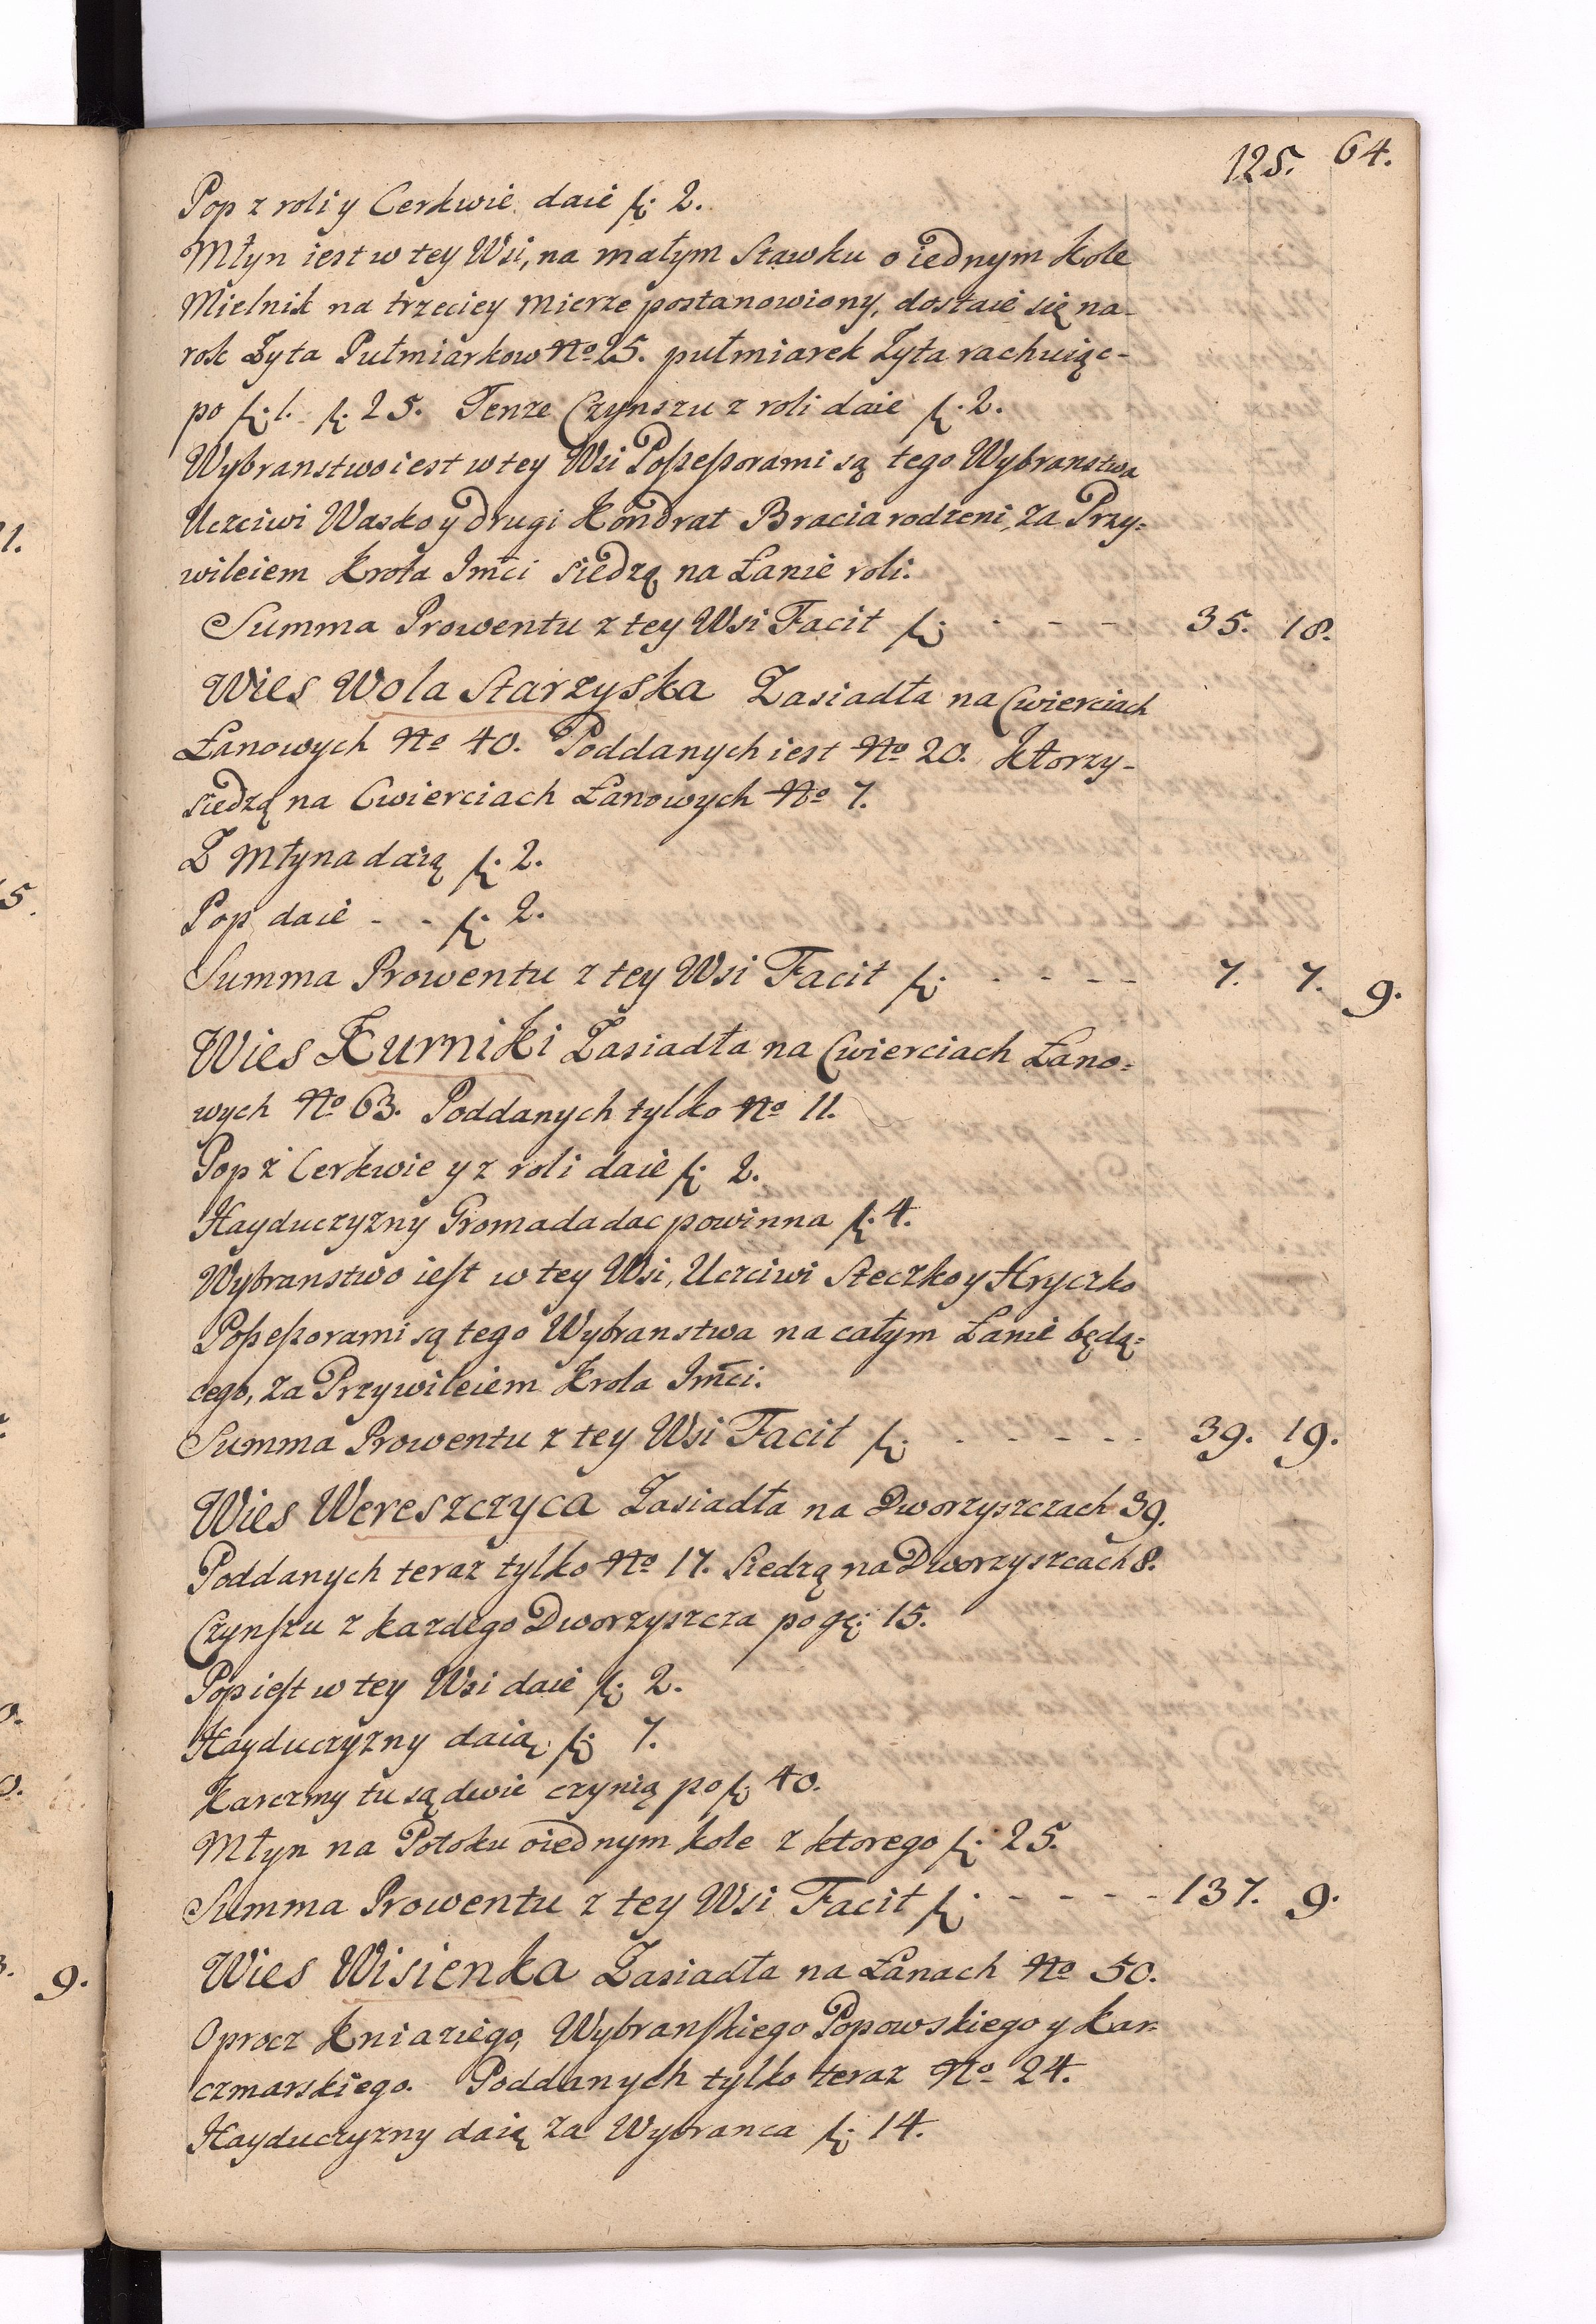 125. 64.
Pop z roli y Cerkwie daie fl: 2.
Młyn iest w tey Wsi, na małym Stawku o iednym kole
Mielnik na trzeciey mierze postanowiony, dostaie się na-
rok Zyta Pułmiarkow No 25. pułmiarek Zyta rachuiąc-
po fl: 1. fl: 25. Tenze Czynszu z roli daie fl: 2.
Wybranstwo iest w tey Wsi Poſseſsorami są tego Wybranstwa
Uczciwi Wasko y drugi Kondrat Bracia rodzeni, za Przy=
wileiem Krola Jmci siedzą na Łanie roli.
Summa Prowentu z tey Wsi Facit fl: - - - 35. 18.
Wies Wola Starzyska Zasiadła na Cwierciach
Łanowych No 40. Poddanych iest No 20. Ktorzy-
siedzą na Cwierciach Łanowych No 7.
Z Młyna daią fl: 2.
Pop daie - - fl: 2.
Summa Prowentu z tey Wsi Facit fl: - - - - 7. 7. 9.
Wies Kurniki Zasiadła na Cwierciach Łano=
wych No 63. Poddanych tylko No 11.
Pop z Cerkwie y z roli daie fl: 2.
Hayduczyzny Gromada dac powinna fl: 4.
Wybranstwo ieſt w tey Wsi, Uczciwi Steczko y Hryczko
Poſseſsorami są tego Wybranstwa na całym Łanie będą=
cego, za Przywileiem Krola Jmci.
Summa Prowentu z tey Wsi Facit fl: - - - - - 39. 19.
Wies Wereszczyca Zasiadła na Dworzyszczach 39.
Poddanych teraz tylko No 17. Siedzą na Dworzyszcach 8.
Czynſzu z kazdego Dworzyszcza po gr: 15.
Pop ieſt w tey Wsi daie fl: 2.
Hayduczyzny daią fl: 7.
Karczmy tu są dwie czynią po fl: 40.
Młyn na Potoku o iednym kole z ktorego fl: 25.
Summa Prowentu z tey Wsi Facit fl: - - - - 137. 9.
Wies Wisienka Zasiadła na Łanach No 50.
Oprocz Kniaziego, Wybranſkiego Popowskiego y Kar=
czmarskiego. Poddanych tylko teraz No 24.
Hayduczyzny daią za Wybranca fl: 14.